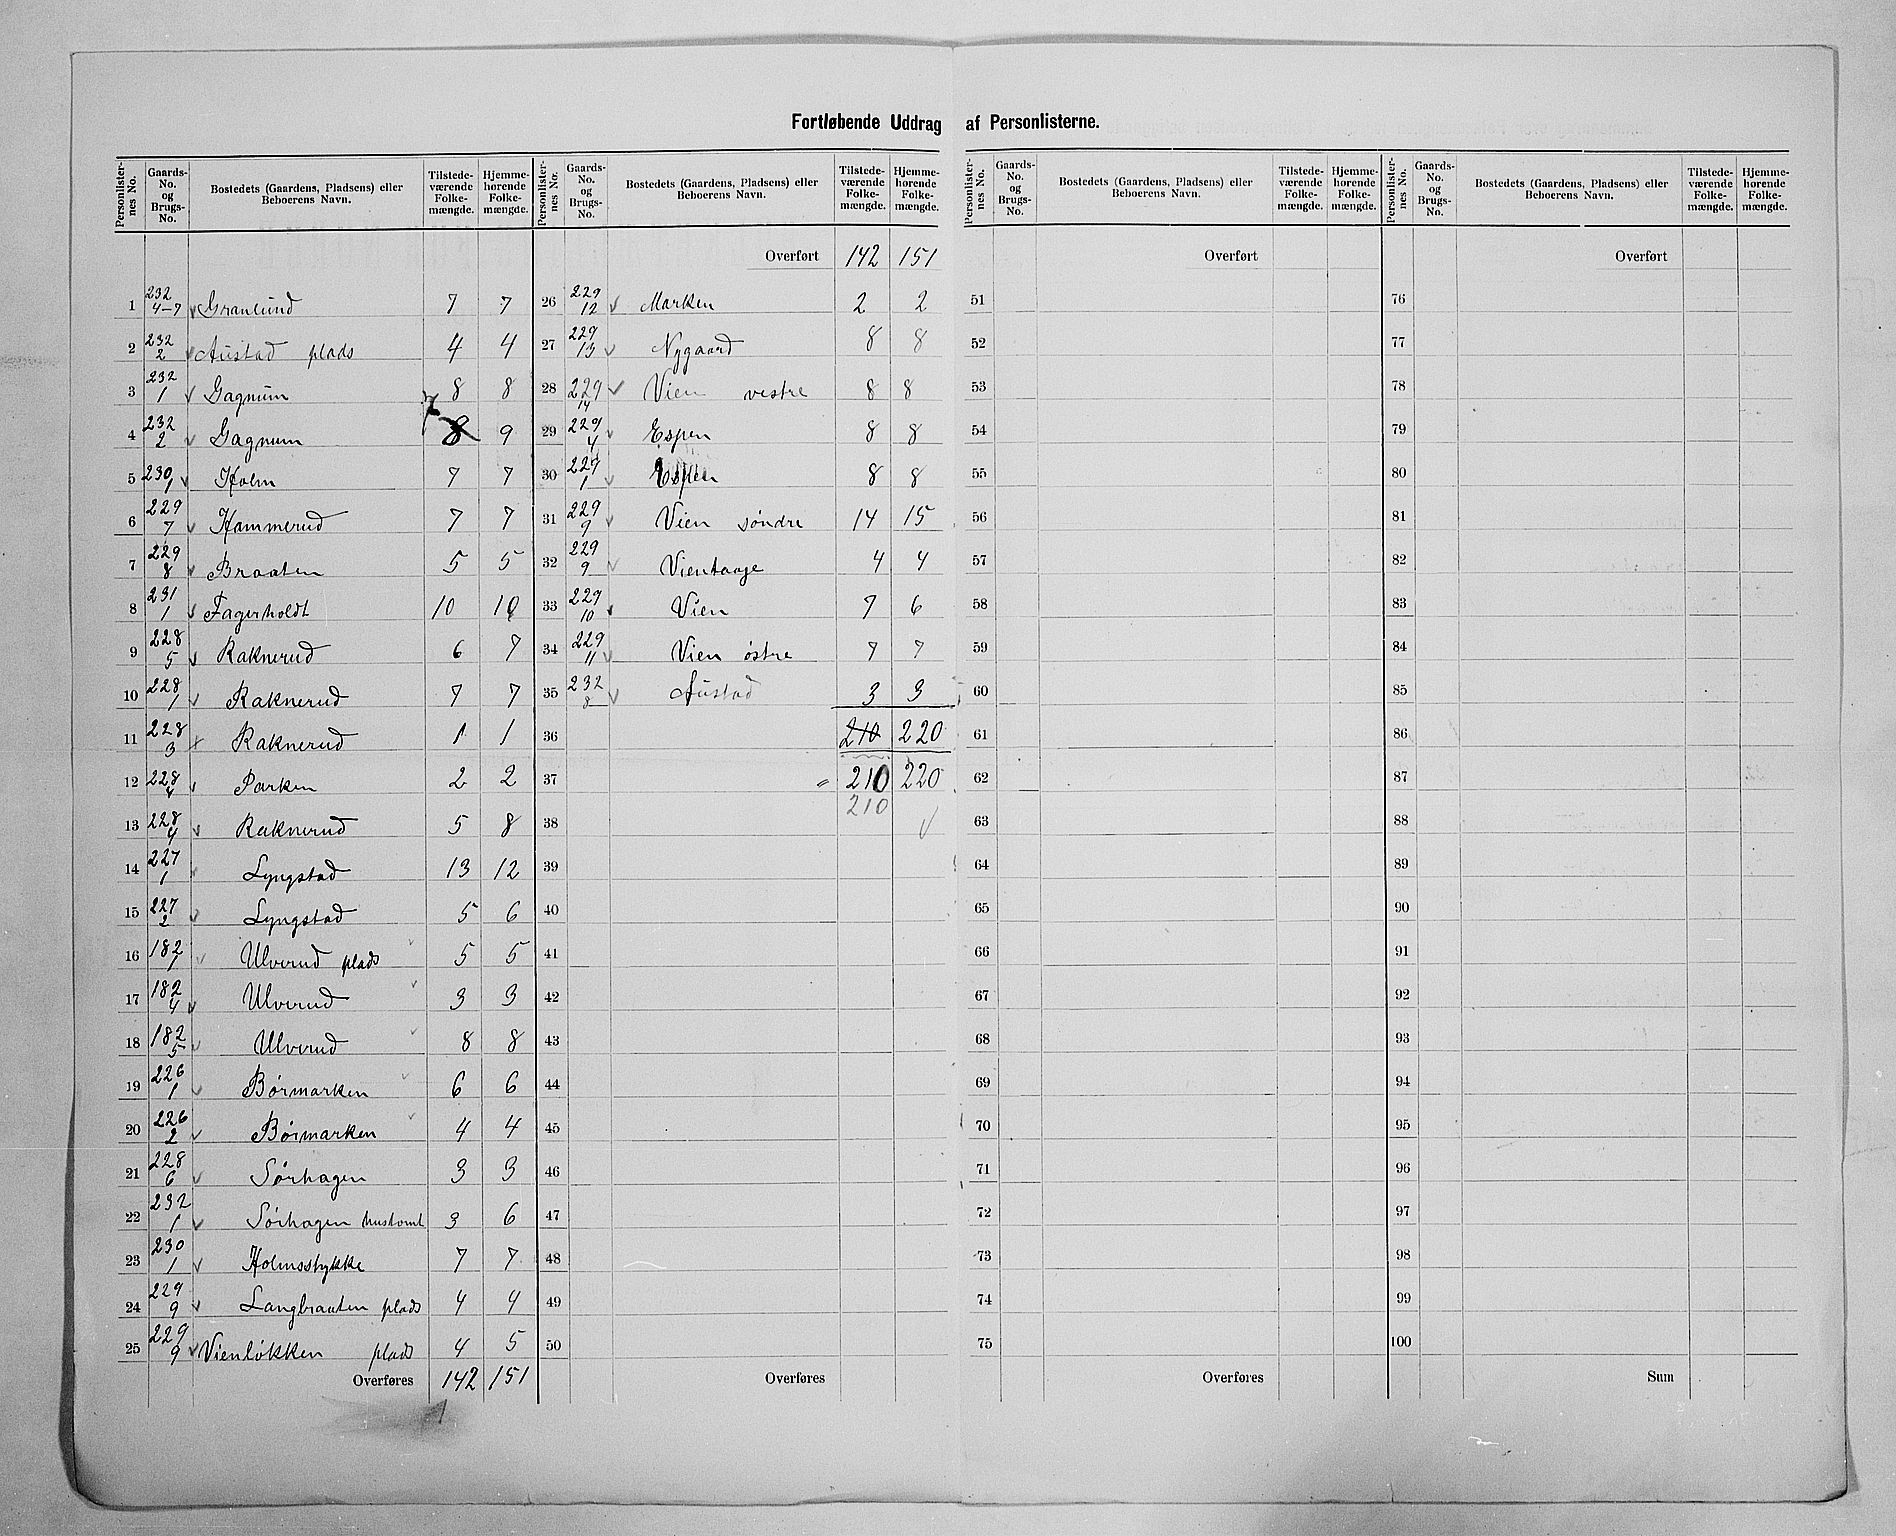 Fortløbende Uddrag af Personlisterne.
Personlister-nes No. | Gaards-No. og Brugs-No. | Bostedets (Gaardens, Pladsens) eller Beboerens Navn. | Tilstede-værende Folke-mængde. | Hjemme-hørende Folke-mængde.
1 232 4-7 Granlund 7 7
2 232 2 Austad plads 4 4
3 232 1 Gagnum 8 8
4 232 2 Gagnum 7 8 9
5 230 1 Holm 7 7
6 229 7 Hammerud 7 7
7 229 8 Braaten 5 5
8 231 1 Fagerholdt 10 10
9 228 5 Raknerud 6 7
10 228 1 Raknerud 7 7
11 228 3 Raknerud 1 1
12 228 Parken 2 2
13 228 4 Raknerud 5 8
14 227 1 Lyngstad 13 12
15 227 2 Lyngstad 5 6
16 182 1 Ulverud plads 5 5
17 182 4 Ulverud 3 3
18 182 5 Ulverud 8 8
19 226 1 Børmarken 6 6
20 226 2 Børmarken 4 4
21 228 6 Sørhagen 3 3
22 232 1 Sørhagen hustomt 3 6
23 230 1 Holmsstykke 7 7
24 229 9 Langbraaten plads 4 4
25 229 9 Vienløkken plads 4 5
Overføres 142 151
Personlister-nes No. | Gaards-No. og Brugs-No. | Bostedets (Gaardens, Pladsens) eller Beboerens Navn. | Tilstede-værende Folke-mængde. | Hjemme-hørende Folke-mængde.
Overført 142 151
26 229 12 Marken 2 2
27 229 13 Nygaard 8 8
28 229 14 Vien vestre 8 8
29 229 4 Espen 8 8
30 229 1 Espen 8 8
31 229 9 Vien søndre 14 15
32 229 9 Vienhauge 4 4
33 229 10 Vien 7 6
34 229 11 Vien østre 7 7
35 232 8 Austad 3 3
36 210 220
37 " 210 220
210
38
39
40
41
42
43
44
45
46
47
48
49
50
Overføres
Personlister-nes No. | Gaards-No. og Brugs-No. | Bostedets (Gaardens, Pladsens) eller Beboerens Navn. | Tilstede-værende Folke-mængde. | Hjemme-hørende Folke-mængde.
Overført
51
52
53
54
55
56
57
58
59
60
61
62
63
64
65
66
67
68
69
70
71
72
73
74
75
Overføres
Personlister-nes No. | Gaards-No. og Brugs-No. | Bostedets (Gaardens, Pladsens) eller Beboerens Navn. | Tilstede-værende Folke-mængde. | Hjemme-hørende Folke-mængde.
Overført
76
77
78
79
80
81
82
83
84
85
86
87
88
89
90
91
92
93
94
95
96
97
98
99
100
Sum